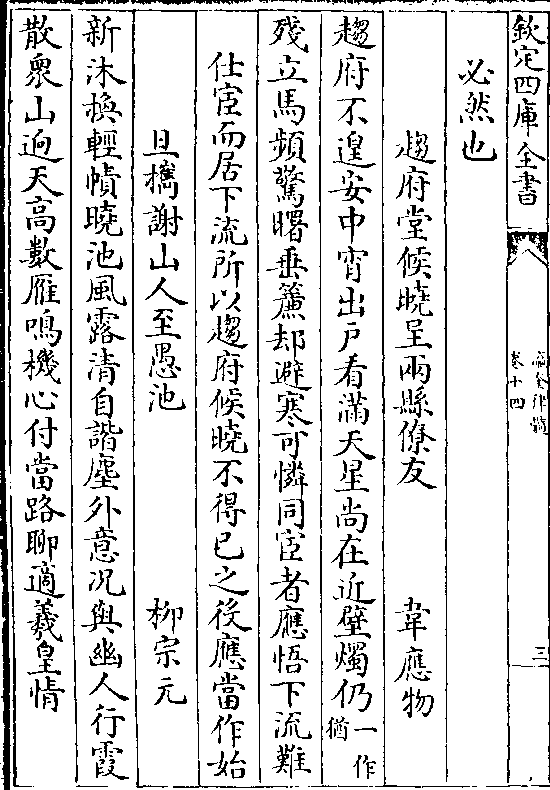 欽定四庫全書
瀛奎律髓
卷十四
三
必然也
趨府堂候曉呈兩縣僚友
韋應物
趨府不遑安中宵出戶看滿天星尚在近壁燭仍一作猶
殘立馬頻驚曙垂簾却避寒可憐同宦者應悟下流難
仕宦而居下流所以趨府候曉不得已之役應當作始
旦攜謝山人至愚池
柳宗元
新沐換輕幘曉池風露清自諧塵外意况與幽人行霞
散衆山逈天高數雁鳴機心付當路聊適羲皇情